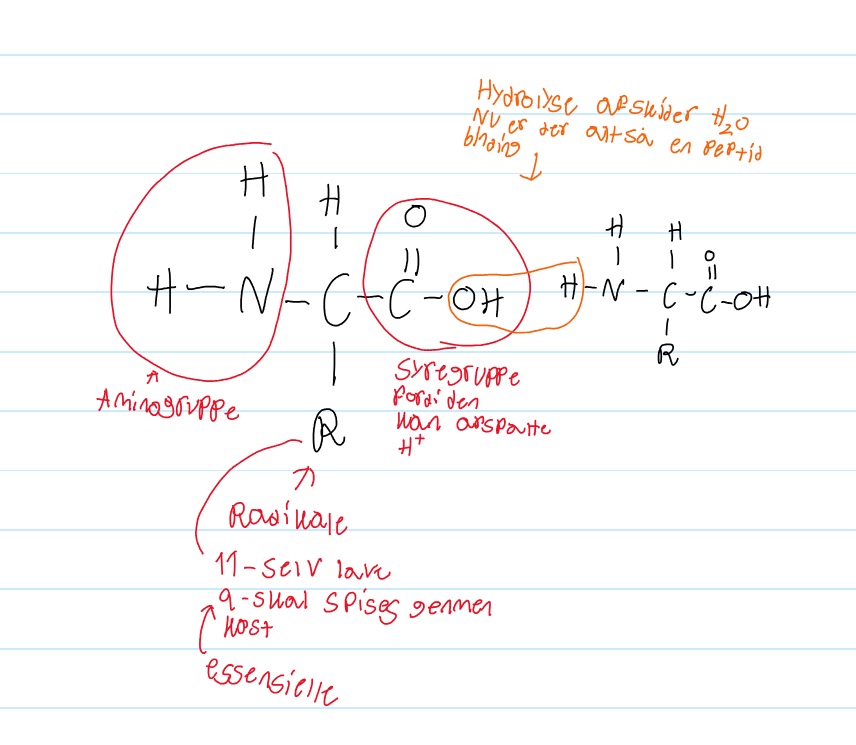 Hydrolyse afskider H₂O
NU er der altså en peptid
binding
H
H
H
H
O
O
H — N — C — C — OH
H — N — C — C — OH
R
R
Aminogruppe
Syregruppe
Fordi den
kan afspalte
H⁺
Radikale
11 - selv lave
9 - skal spises gennem
kost
essensielle